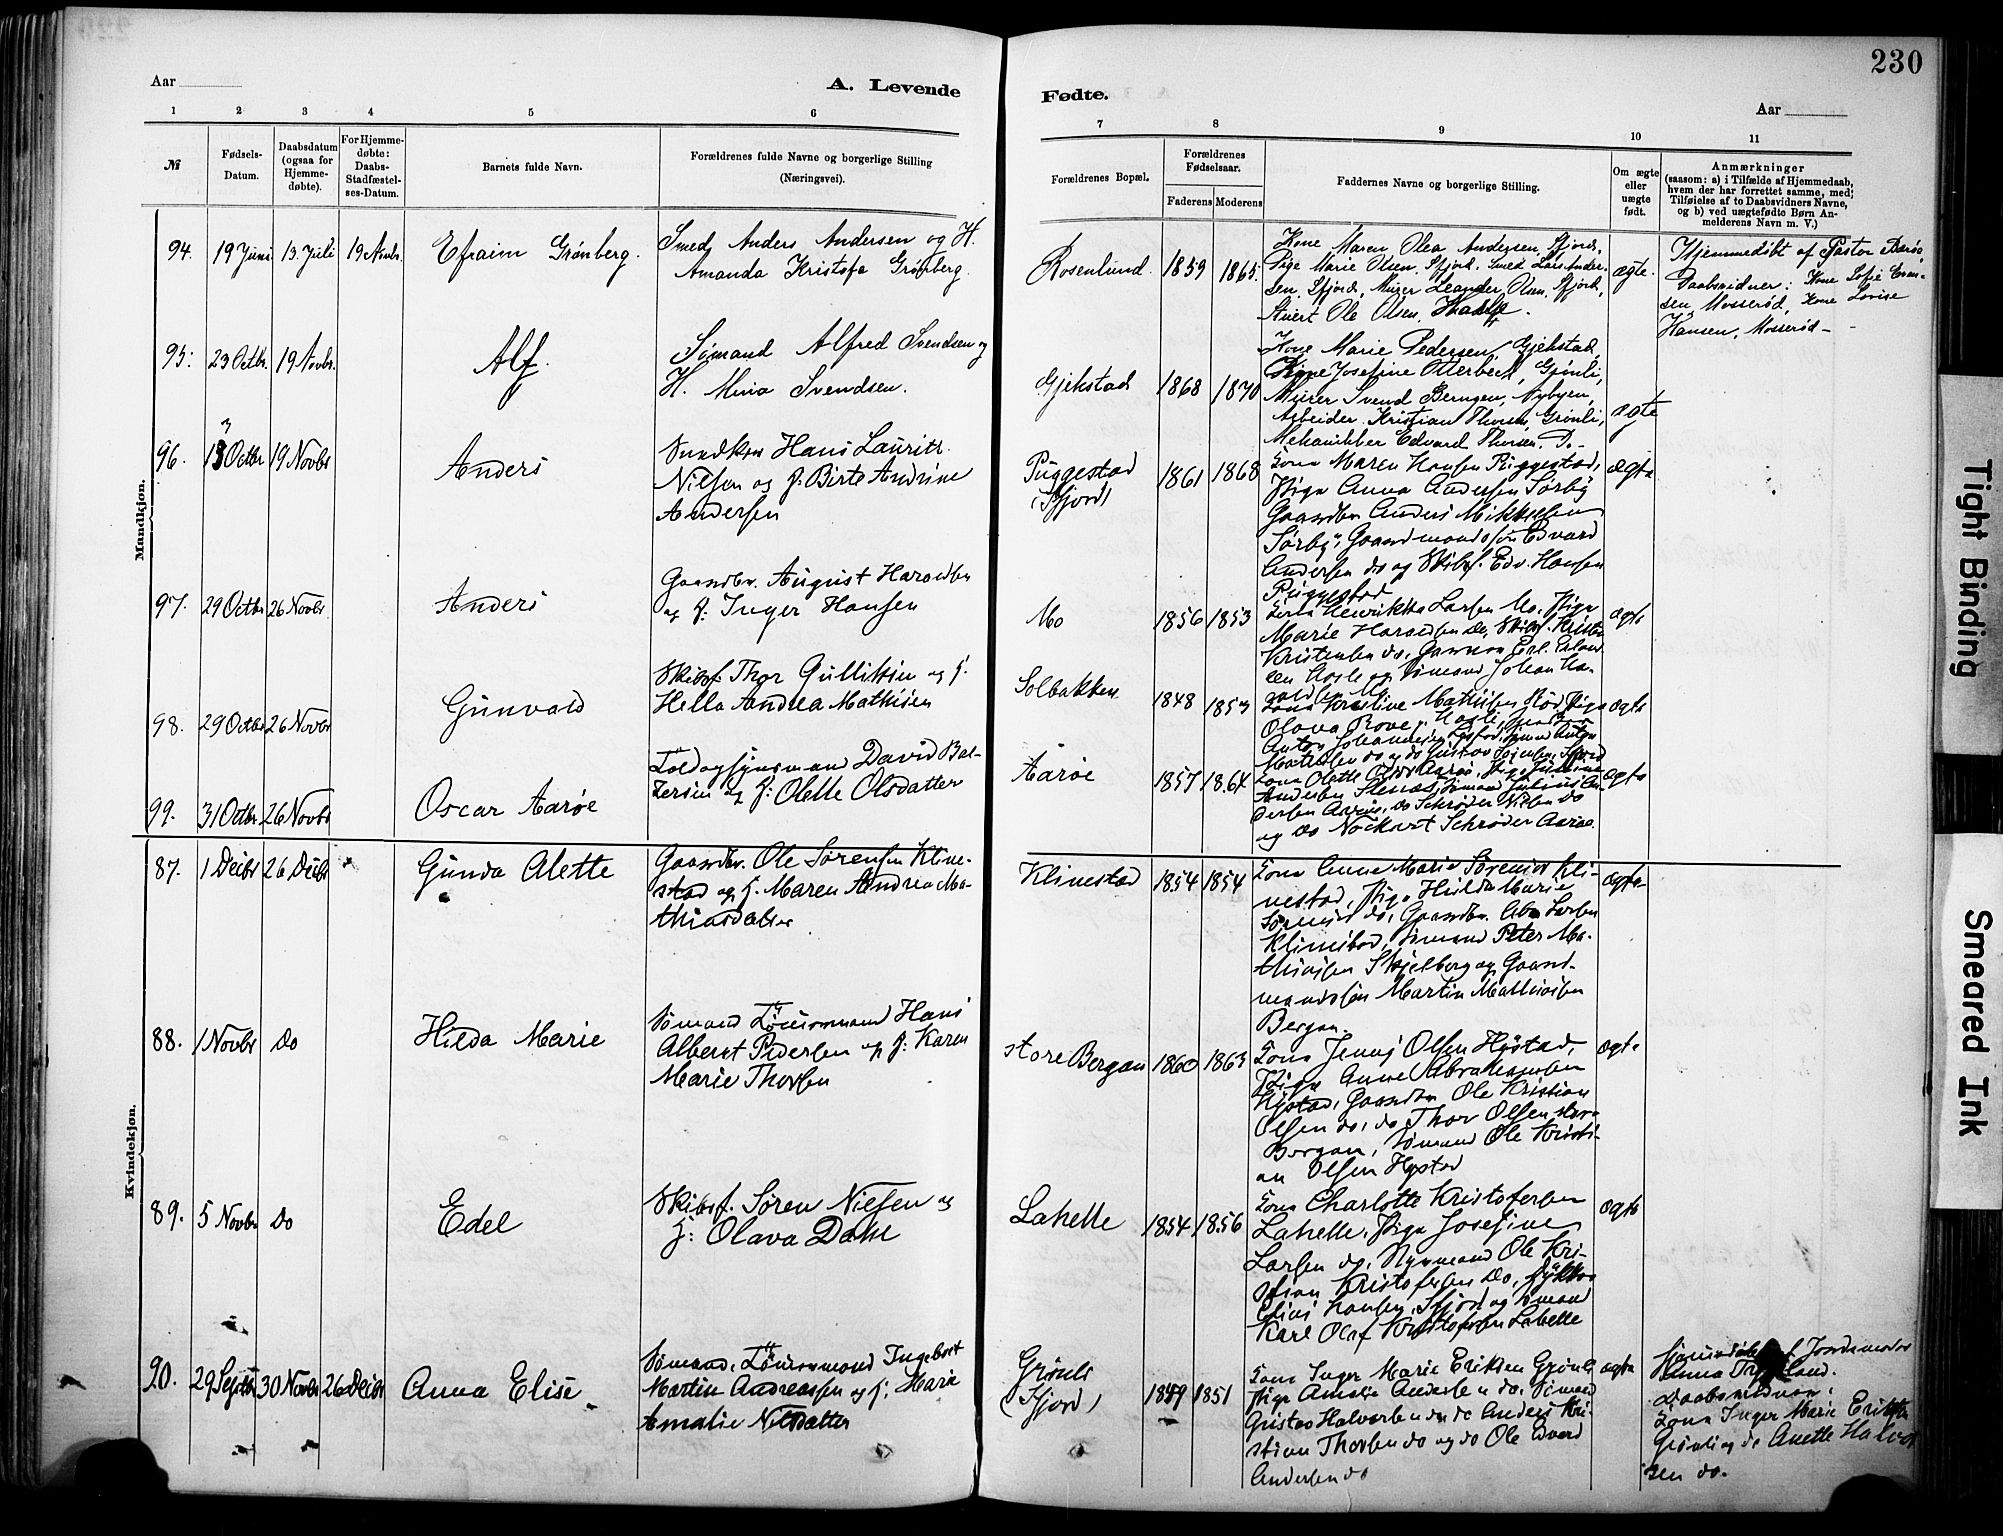 230
Aar
A. Levende
Fødte.
Aar
1 2 3 4 5 6 7 8 9 10 11
№
Fødsels-
Datum.
Daabsdatum
(ogsaa for
Hjemme-
døbte).
For Hjemme-
døbte:
Daabs-
Stadfæstel-
ses-Datum.
Barnets fulde Navn.
Forældrenes fulde Navne og borgerlige Stilling
(Næringsvei).
Forældrenes Bopæl.
Forældrenes
Fødselsaar.
Faderens Moderens
Faddernes Navne og borgerlige Stilling.
Om ægte
eller
uægte
født.
Anmærkninger
(saasom: a) i Tilfælde af Hjemmedaab,
hvem der har forrettet samme, med
Tilføielse af to Daabsvidners Navne,
og b) ved uægtefødte Børn An-
melderens Navn m. V.)
Mandkjøn.
94. 19 Juni 13 Juli 19 Novbr. Efraim Grønberg.
Smed Anders Andersen og H.
Amanda Kristofa Grønberg.
Rosenlund. 1859 1865.
Kone Maren Olea Andersen, Sfjord,
Pige Marie Olsen, Sfjord, Smed Lars Ander-
sen, Sfjord, Murer Leander Olsen, Sfjord,
Stuert Ole Olsen,
ægte.
Hjemmedøbt af Pastor Aarøe,
Daabsvidner: Kone Sofie Evan-
sen, Mosserød, Kone Lovise
Hansen, Mosserød -
95. 23 Octbr. 19 Novbr. Alf.
Sømand Alfred Svendsen og
H. Mina Svendsen.
Gjekstad 1868 1870
Kone Marie Pedersen, Gjekstad,
Kone Josefine Otterbeck, Grønli,
Murer Svend Berngen, Nybyen,
Arbeider Kristian Thorsen, Grønli,
Mekanikker Edvard Thorsen, Do.-
ægte
96. 13 Octbr 19 Novbr Anders
Hans Lauritz
Nilsen og H. Birte Andrine
Andersen
Puggestad
(Sfjord) 1861 1868
Kone Maren Hansen Puggestad,
Pige Anna Andersen Sørby
Gaardbr. Anders Mikkelsen
Sørby, Gaardmandssøn Edvard
Andersen do og Skibsf. Edv. Hansen
Puggestad
ægte
97. 29 Octbr 26 Novbr Anders
Gaardbr. August Haraldsen
og H. Inger Hansen
Mo 1856 1853
Kone Henrikka Larsen Mo, Pige
Marie Haraldsen do, Skibsf. Kristen
Kristensen do,
og Sømand Johan Ha-
raldsen Mo
ægte
98. 29 Octbr 26 Novbr Gunvald
Skibsf. Thor Gulliksen og H.
Hella Andrea Mathisen
Solbakken 1848 1853
Kone Kristine Mathisen Rød, Pige
Olava Rove,
Anton Johannesen
Mathisen do og do Gustav
ægte
99. 31 Octbr 26 Novbr Oscar Aarøe
Toldopsynsmand David Bal-
tersen og H: Olette Olsdatter
Aarøe 1857 1864
Kone Olette Olsen Aarøe, Pige
Andersen Stensås, Sømand Julius An-
dersen Aarøe, do Schrøder Nielsen do
og do Nockart Schrøder Aarøe.
ægte
Kvindekjøn.
87. 1 Decbr 26 Decbr Gunda Alette
Gaardbr. Ole Sørensen Kline-
stad og H. Maren Andrea Ma-
thiasdatter
Klinestad 1854 1854
Kone Anne Marie Sørensen Kli-
nestad, Pige Hulda Marie
Sørensen do, Gaardbr. Abr. Larsen
Klinestad, Sømand Peter Ma-
thisen Skjelberg og Gaard-
mandssøn Martin Mathisen
Bergan.
ægte
88. 1 Novbr Do Hilda Marie
Sømand Tømmermand Hans
Albert Pedersen og H: Karen
Marie Thorsen
store Bergan 1860 1863
Kone Jenny Olsen Hystad,
Pige Anne Abrahamsen
Hystad, Gaardbr. Ole Kristian
Olsen do, do Thor Olsen store
Bergan, Sømand Ole Kristi-
an Olsen Hystad
ægte
89. 5 Novbr Do Edel
Skibsf. Søren Nielsen og
H: Olava Dahl
Lahelle 1854 1856
Kone Charlotte Kristofersen
Lahelle, Pige Josefine
Larsen do, Styrmand Ole Kri-
stian Kristofersen do,
Elias Hansen, Sfjord og Sømand
Karl Olaf Kristofersen Lahelle
ægte
90. 29 Septbr 30 Novbr 26 Decbr Anna Elise
Sømand, Tømmermand Ingebret
Martin Andreassen og H. Marie
Amalie Nilsdatter
Grønli
(Sfjord) 1849 1851
Kone Inger Marie Eriksen Grønli
Pige Amalie Andersen do, Sømand
Gustav Halvorsen do, do Anders Kri-
stian Thorsen do og do Ole Edvard
Andersen do
ægte
Hjemmedøbt af Jordemoder
Anna
Daabsvidner:
Kone Inger Marie Eriksen
Grønli og do Anette Halvor-
sen do.
Tight Binding
Smeared Ink